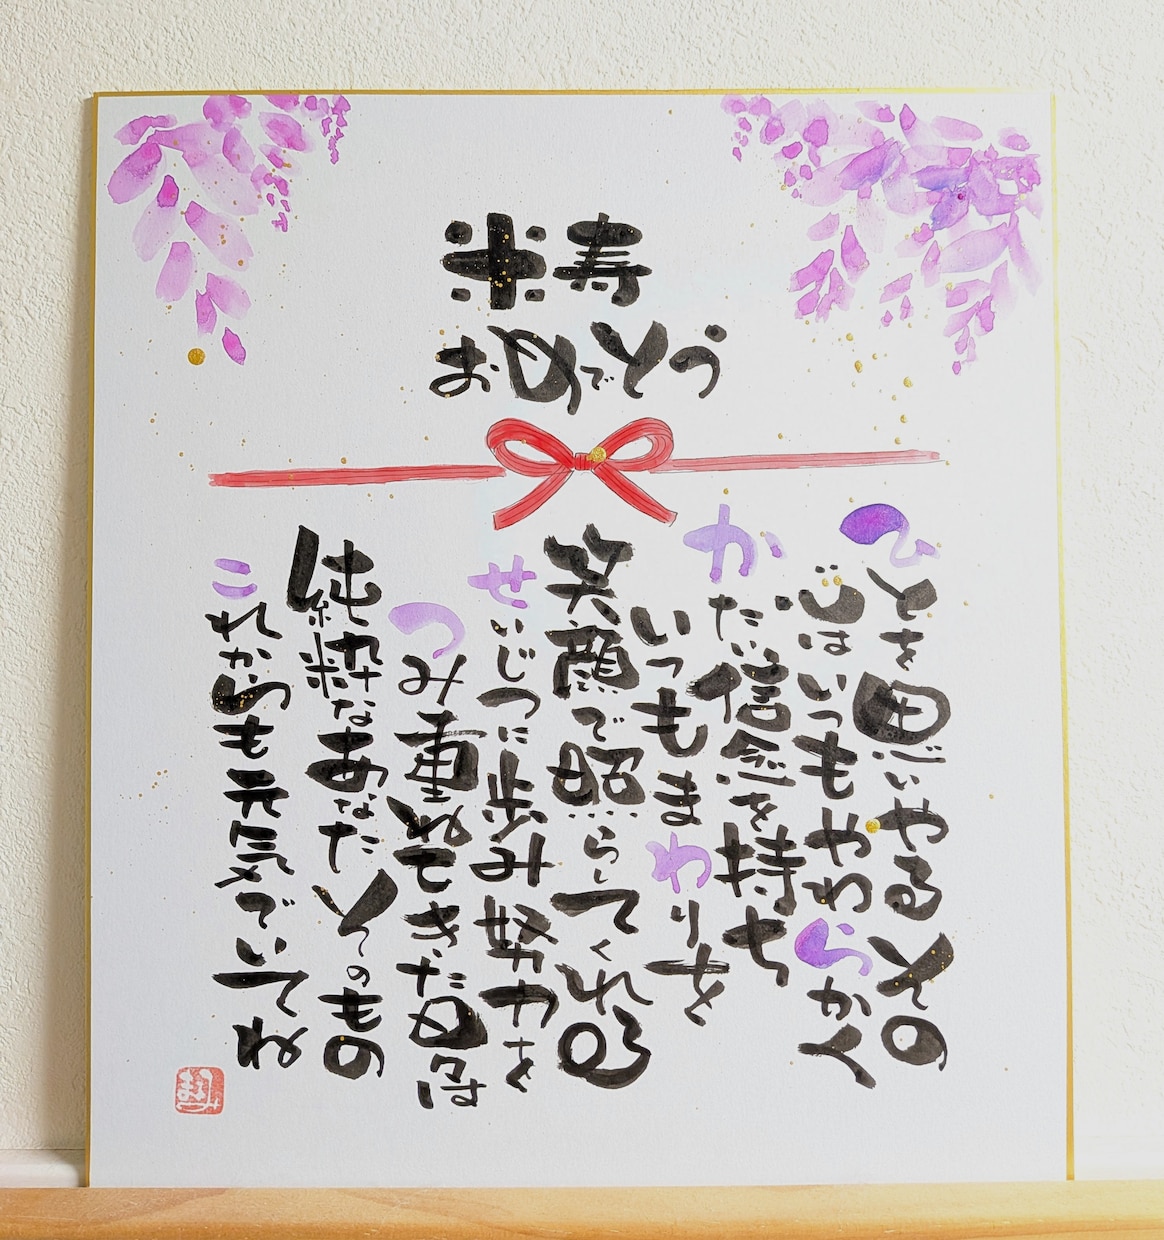 米寿
おめでとう
ひとを思いやるその
心はいつもやわらかく
かたい信念を持ち
いつもまわりを
笑顔で照らしてくれる
せいじつに歩み努力を
つみ重ねてきた日々は
純粋なあなたそのもの
これからも元気でいてね